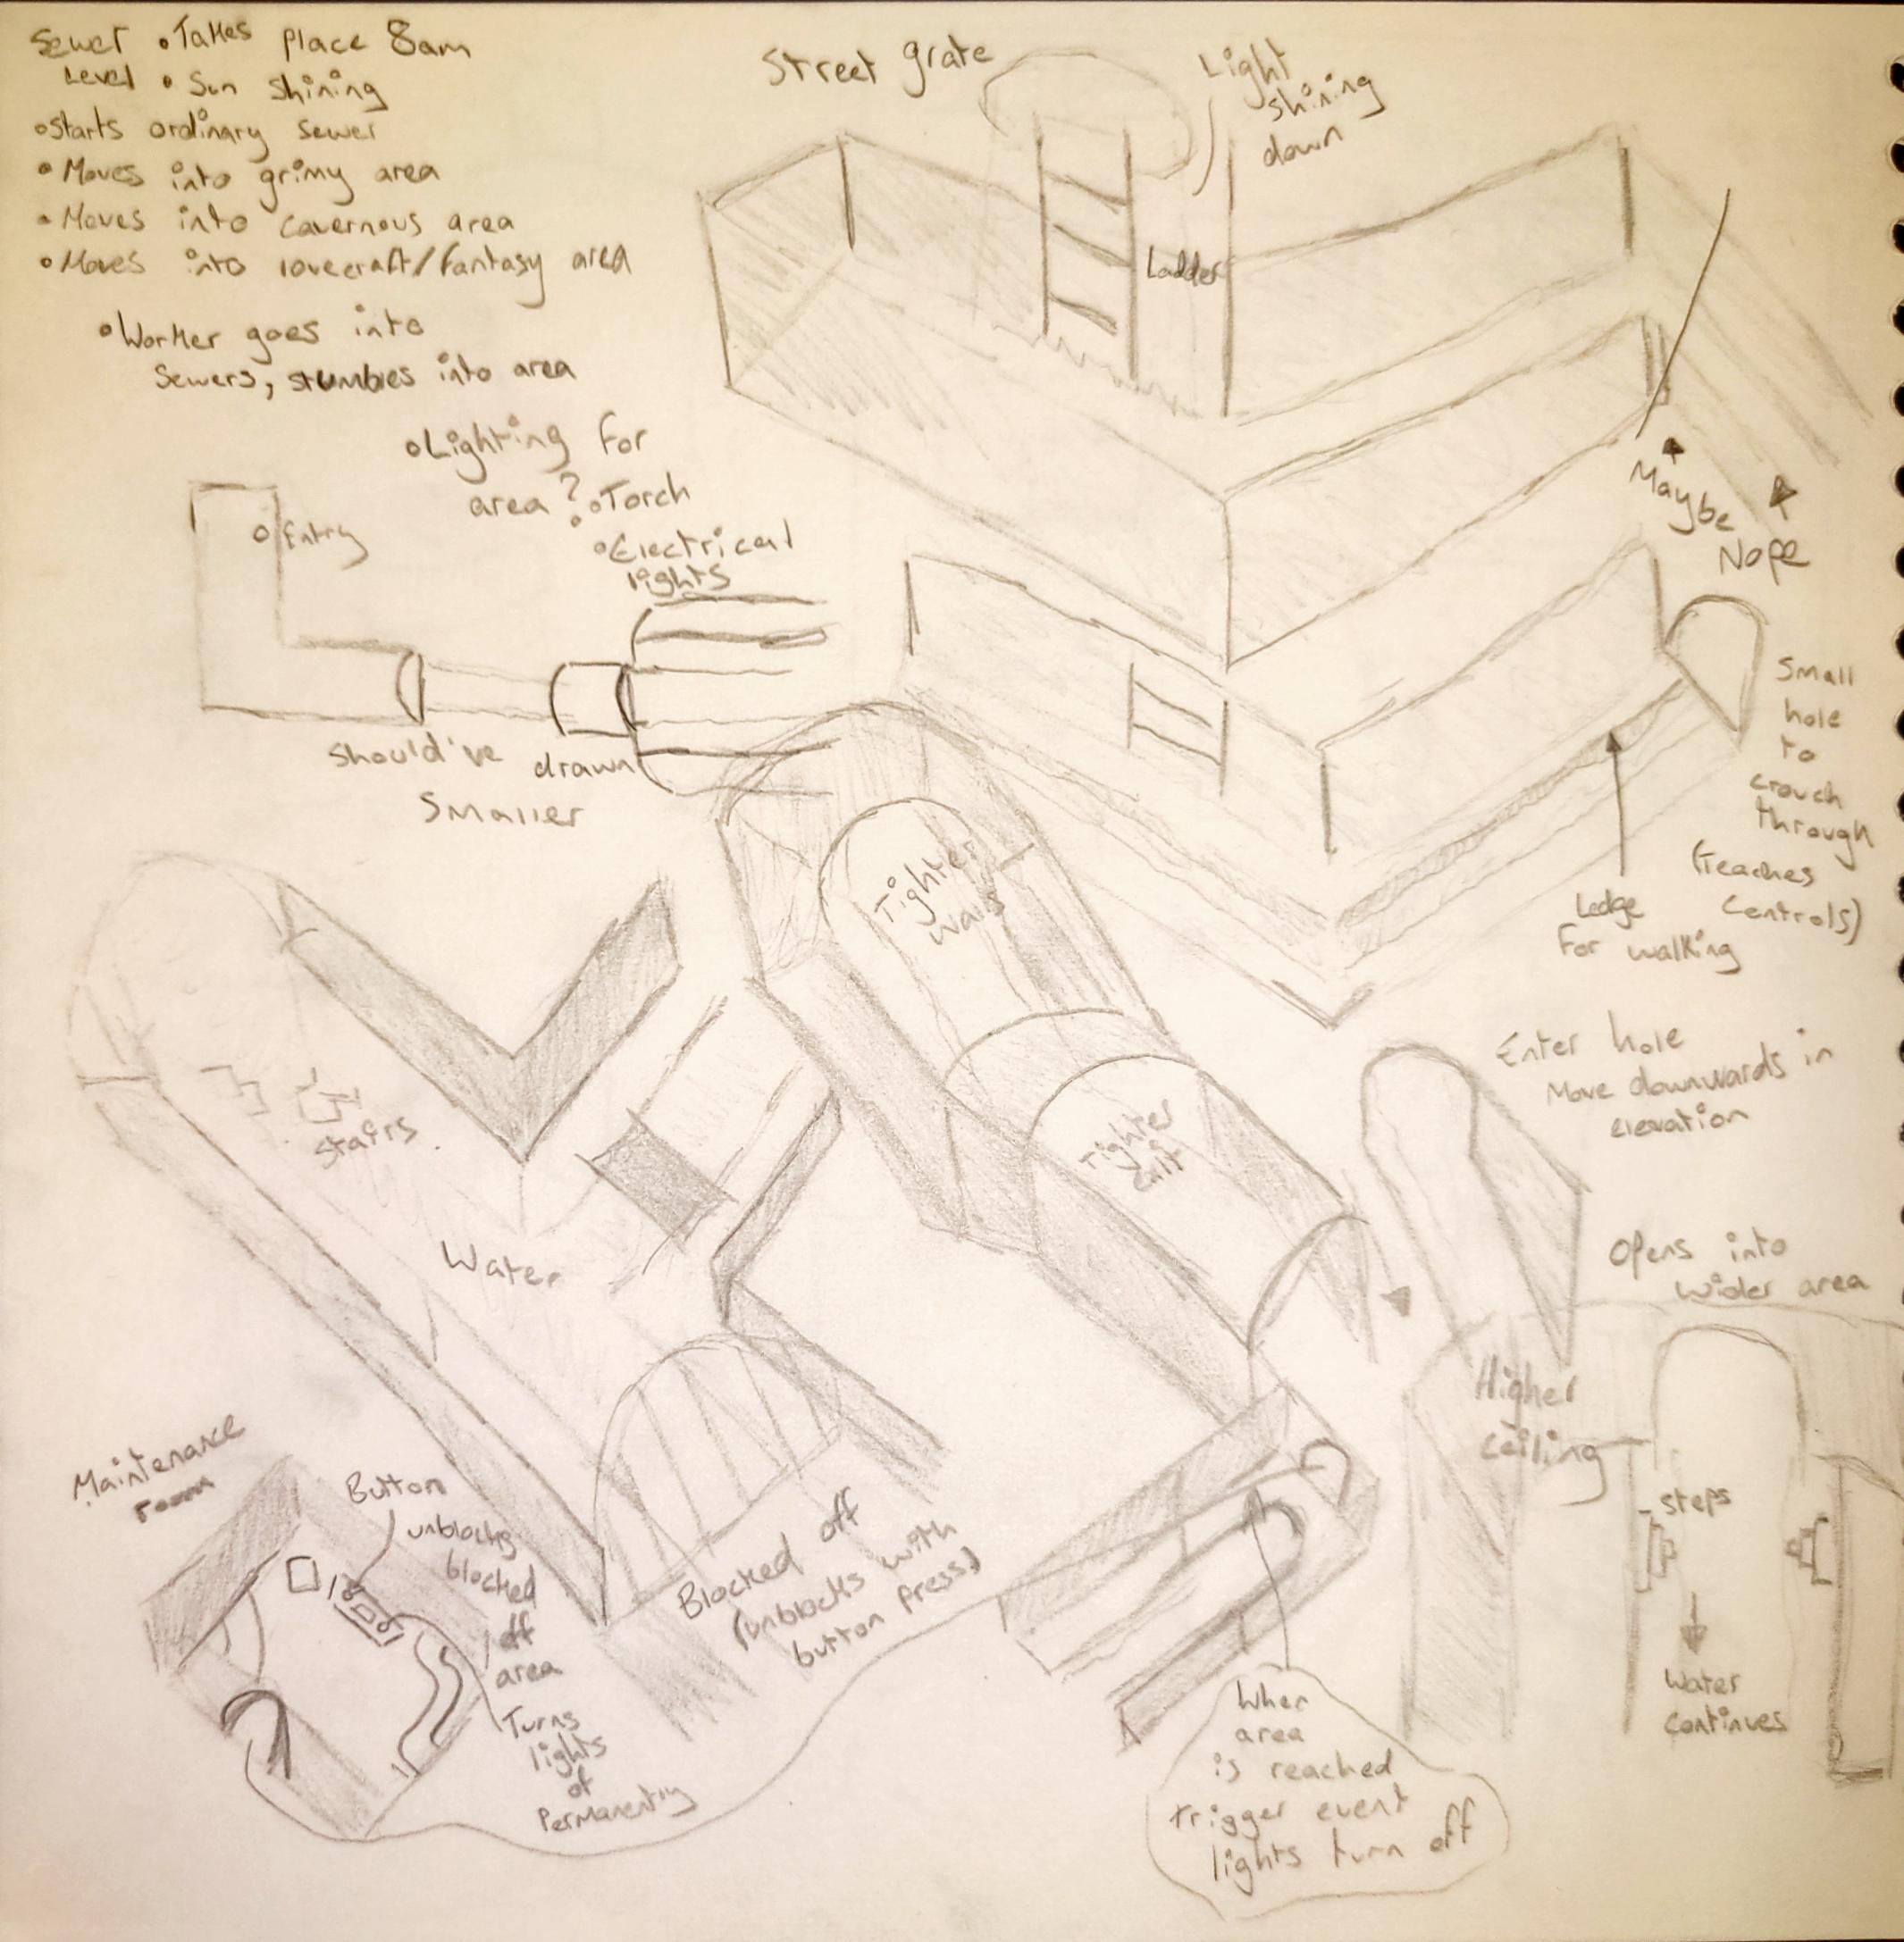 Sewer • Takes place 8am
Level • Sun shining
• Starts ordinary sewer
• Moves into grimy area
• Moves into cavernous area
• Moves into lovecraft/fantasy area
• Worker goes into
sewers, stumbles into area
• Lighting for
area? • Torch
• Electrical
lights
Entry
Should've drawn
Smaller
Street grate
Light
shining
down
Ladder
Maybe
Nope
Small
hole
to
crouch
through
(teaches
controls)
Ledge
for walking
Tighter
walls
Tighter
exit
Enter hole
Move downwards in
elevation
Opens into
wider area
Higher
ceiling
Steps
Water
continues
Stairs
Water
Blocked off
(unblocks with
button press)
Maintenance
room
Button
unblocks
blocked
off
area
Turns
lights
of
Permanently
When
area
is reached
trigger event
lights turn off